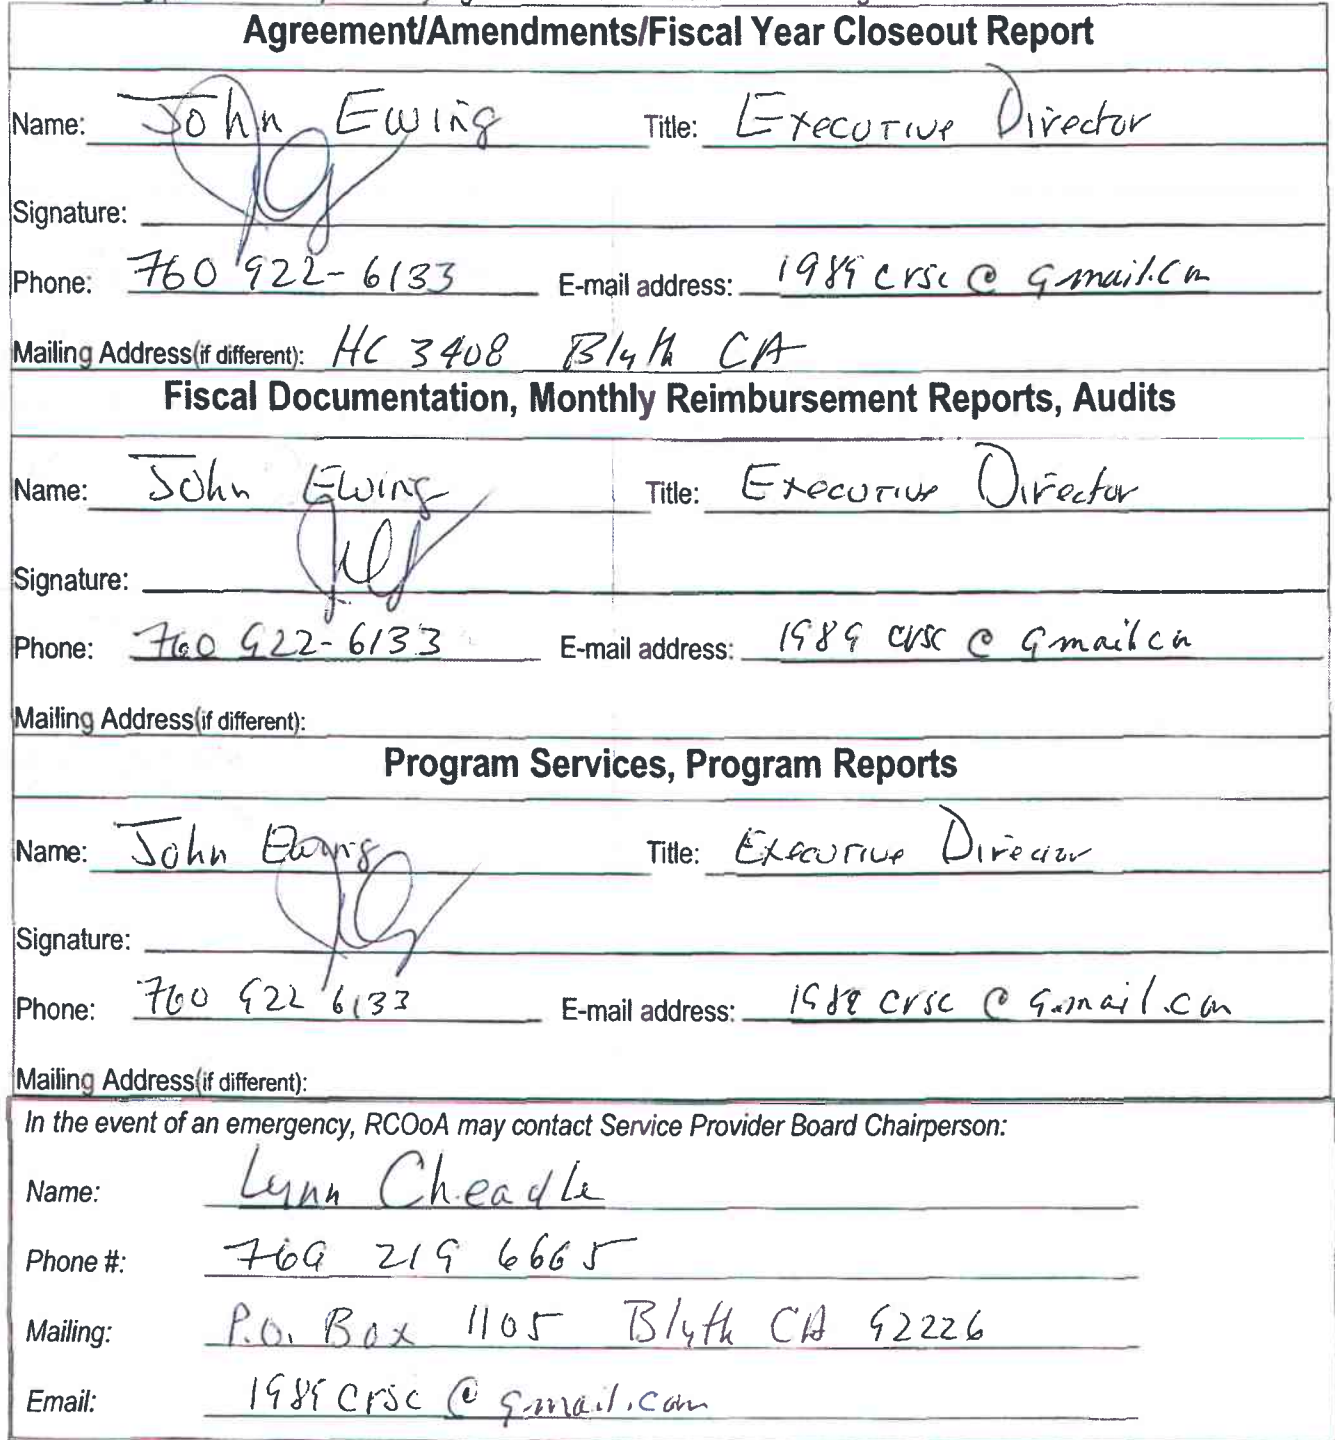 Agreement/Amendments/Fiscal Year Closeout Report
Name: John Ewing Title: Executive Director
Signature:
Phone: 760 922-6133 E-mail address: 1989 crsc @ gmail.com
Mailing Address(if different): HC 3408 Blyth CA
Fiscal Documentation, Monthly Reimbursement Reports, Audits
Name: John Ewing Title: Executive Director
Signature:
Phone: 760 922-6133 E-mail address: 1989 crsc @ gmail.com
Mailing Address(if different):
Program Services, Program Reports
Name: John Ewing Title: Executive Director
Signature:
Phone: 760 922 6133 E-mail address: 1989 crsc @ gmail.com
Mailing Address(if different):
In the event of an emergency, RCOoA may contact Service Provider Board Chairperson:
Name: Lynn Cheadle
Phone #: 769 219 6665
Mailing: P.O. Box 1105 Blyth CA 92226
Email: 1989 crsc @ gmail.com